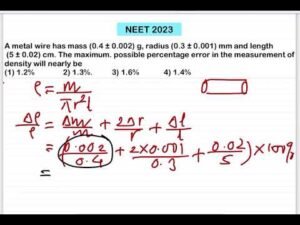 NEET 2023
A metal wire has mass (0.4 ± 0.002) g, radius (0.3 ± 0.001) mm and length
(5 ± 0.02) cm. The maximum. possible percentage error in the measurement of
density will nearly be
(1) 1.2% 2) 1.3%. 3) 1.6% 4) 1.4%
ρ = m / πr²l
Δρ/ρ = Δm/m + 2Δr/r + Δl/l
= (0.002/0.4 + 2×0.001/0.3 + 0.02/5) × 100%
=